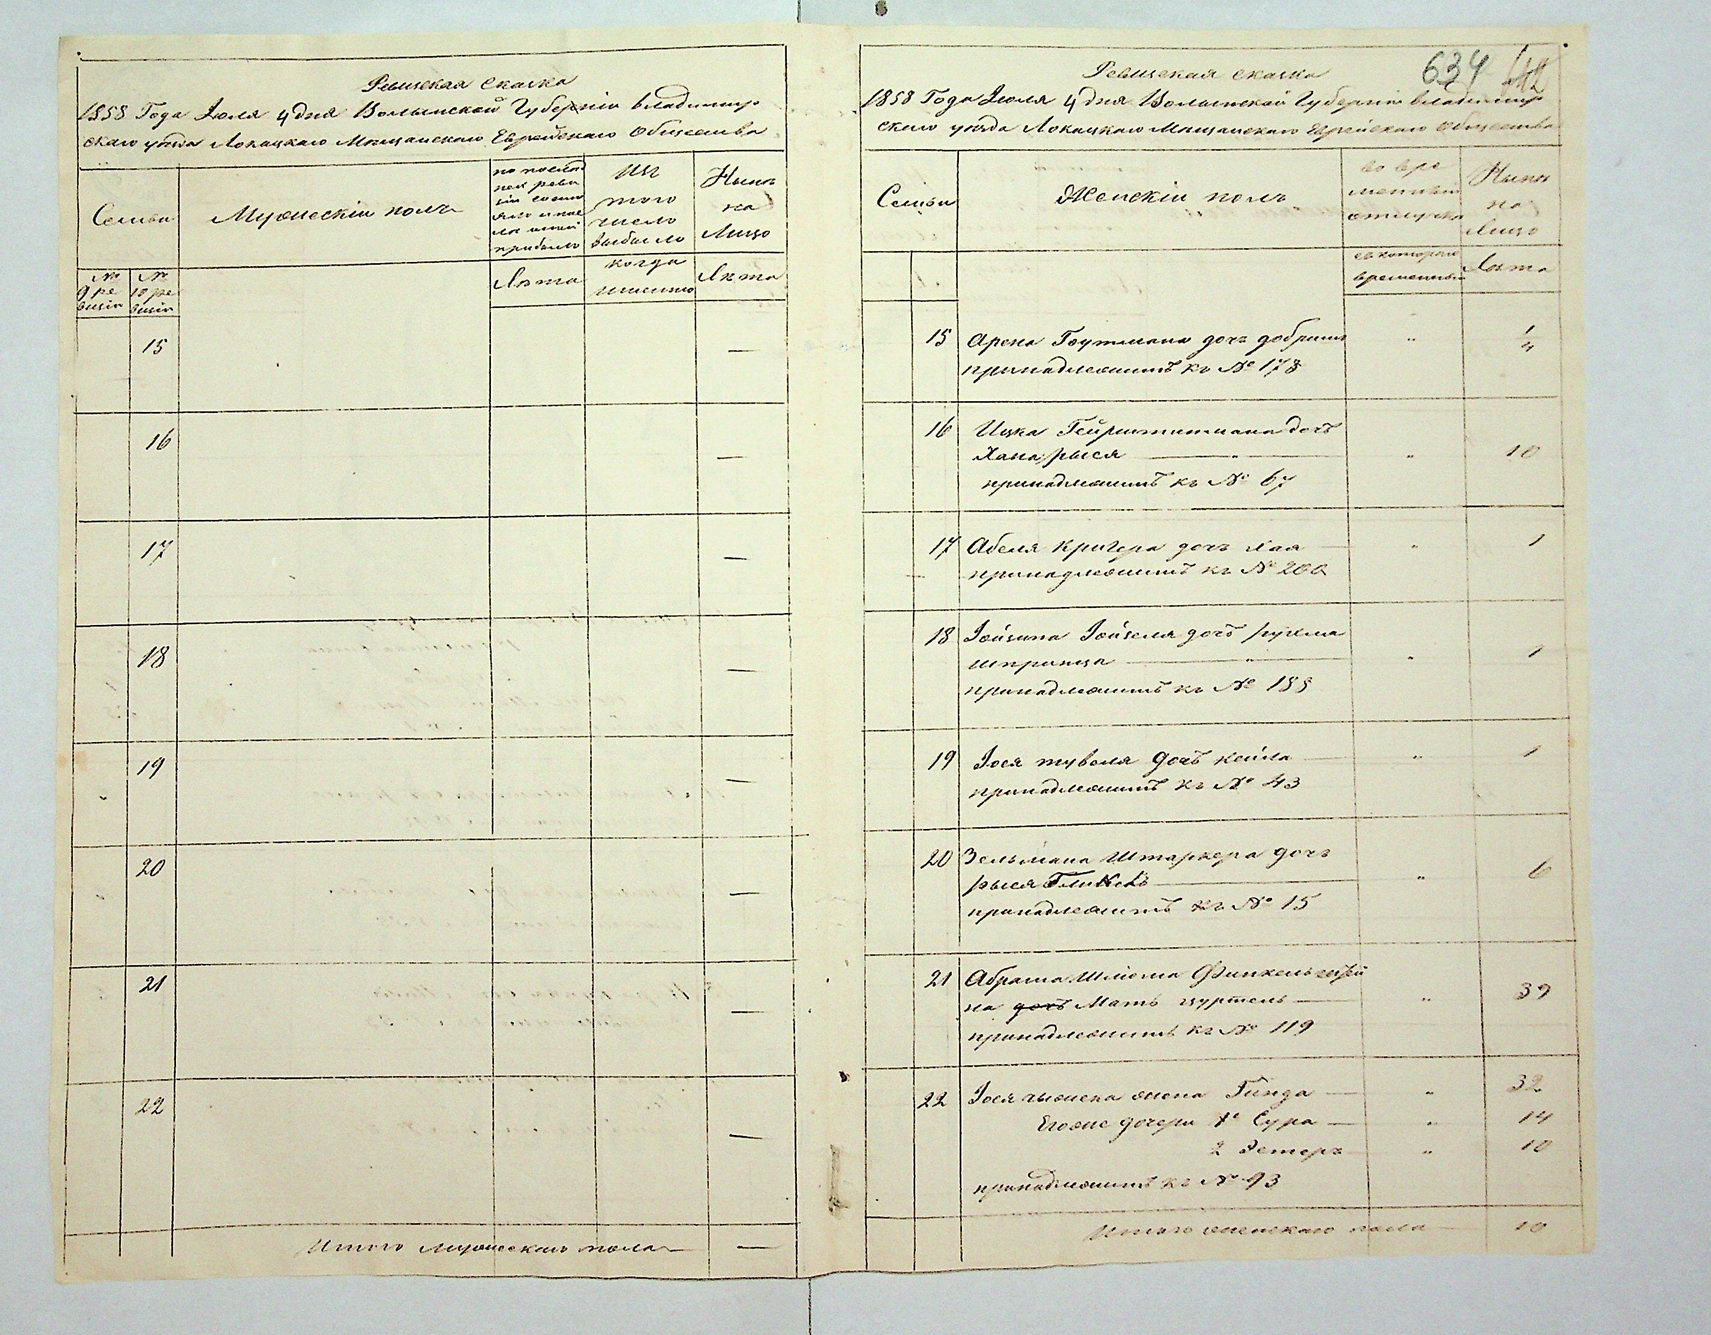 Ревизская сказка
1858 Года Июля 4 дня Волынской Губерніи Владимир
скаго уѣзда Локацкаго Мѣщанскаго Еврейскаго Общества
Семьи
Мужескій полъ
по послѣд
ней реви
зіи состо
яло и пос
ла оной
прибыло
Изъ
того
число
выбыло
Нынѣ
на
Лицо
№
9 ре
визіи
№
10 ре
визіи
Лѣта
когда
именно
Лѣта
15 —
16 —
17 —
18 —
19 —
20 —
21 —
22 —
Итого мужескаго пола — —
634
42
Ревизская сказка
1858 Года Июля 4 дня Волынской Губерніи Владимир
скаго уѣзда Локацкаго Мѣщанскаго Еврейскаго Общества
Семьи
Женскій полъ
во вре
менной
отлучкѣ
Нынѣ
на
Лицо
съ котораго
времени
Лѣта
15 Арона Гоутмана дочь добришъ " 1/4
принадлежитъ къ № 178
16 Ицка дочь
Хана рыся — " — " 10
принадлежитъ къ № 67
17 Абеля Кригера дочь Хая — " 1
принадлежитъ къ № 200
18 Іойзеля дочь рухма
шпринца — " — " 1
принадлежитъ къ № 188
19 Іося тувеля дочь кейла — " 1
принадлежитъ къ № 43
20 Зельмана Штаркера дочь
рыся — " 6
принадлежитъ къ № 15
21 Абрама Шліома Финкельштей
на дочь Мать цуртель — " 39
принадлежитъ къ № 119
22 Іося жена Гинда — " 32
Егоже дочери 1е Сура — " 14
2 Эстеръ " 10
принадлежитъ къ № 93
Итого женскаго пола — 10